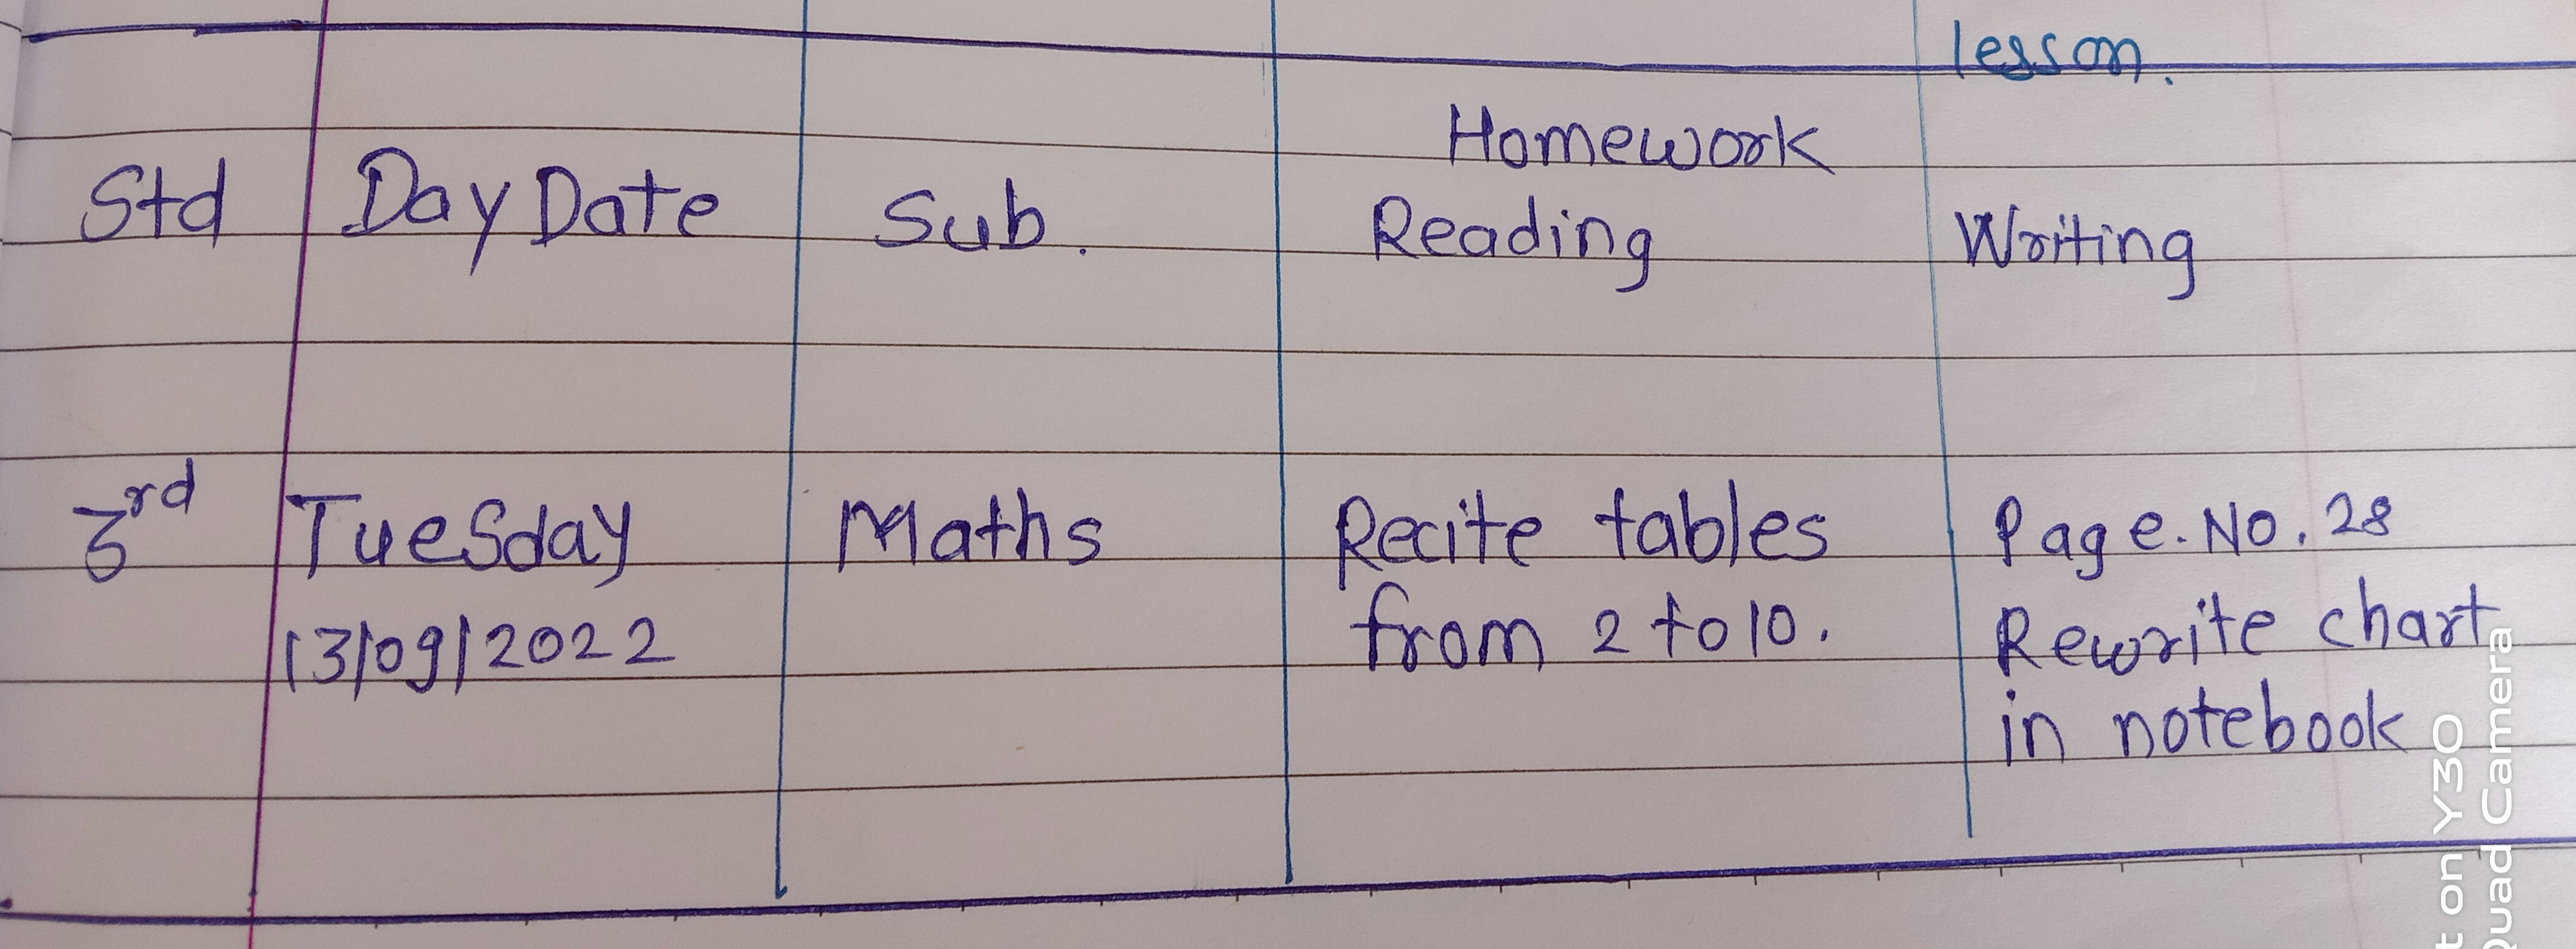 lesson.
Homework
Std Day Date Sub. Reading Writing
3rd Tuesday Maths Recite tables Page. No. 28
13/09/2022 from 2 to 10. Rewrite chart
in notebook
t on Y30
Quad Camera